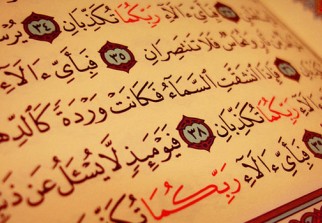 فَبِأَيِّ ءَالَآءِ رَبِّكُمَا تُكَذِّبَانِ ٣٤ يُرْسَ
فَلَا تَنتَصِرَانِ ٣٥ فَبِأَيِّ ءَالَآءِ
فَإِذَا ٱنشَقَّتِ ٱلسَّمَآءُ فَكَانَتْ وَرْدَةً كَٱلدِّهَ
ءَالَآءِ رَبِّكُمَا تُكَذِّبَانِ ٣٨ فَيَوْمَئِذٍ لَّا يُسْـَٔلُ عَن ذَنۢبِ
فَبِأَيِّ ءَالَآءِ رَبِّكُمَا تُكَذِّ